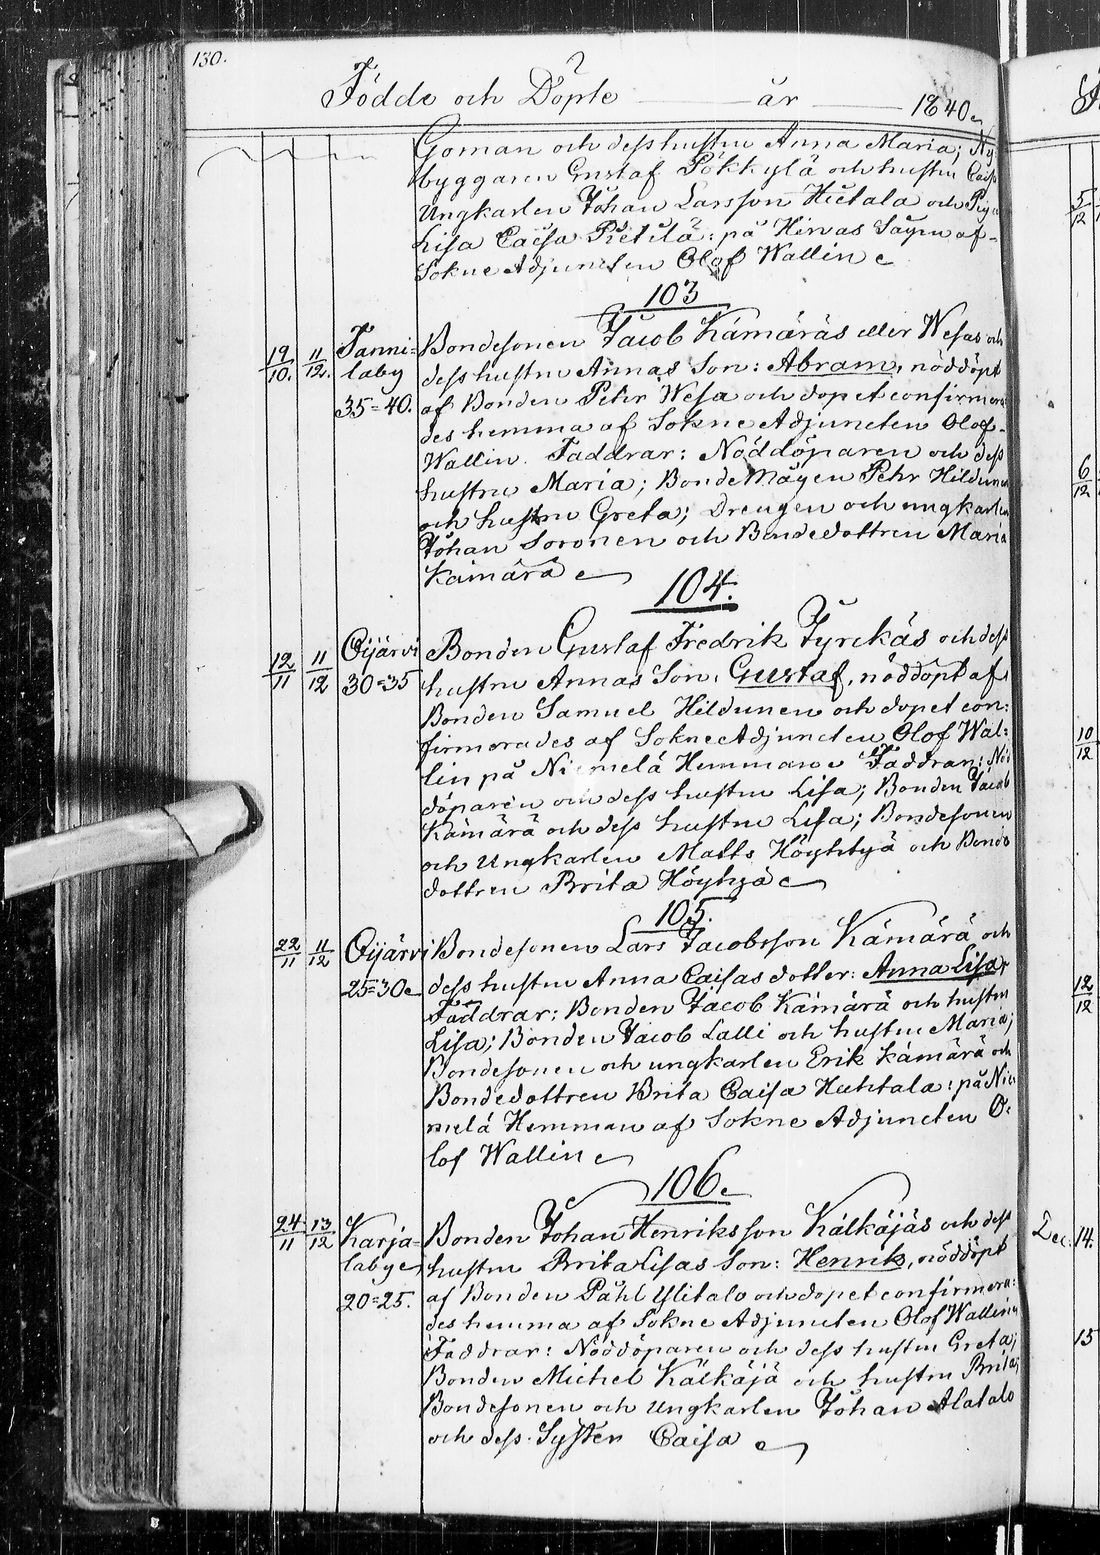 130.
Födde och Döpte — år — 1840
Goman och dess hustru Anna Maria; Ny
byggaren Gustaf Pökkylä och hustru Caisa
Ungkarlen Johan Larsson Hietala och Piga
Lisa Caisa Pietilä: på Hirvas Sågen af
Sokne Adjuncten Olof Wallin
103
19/10. 11/12. Tanni-
laby
35=40.
Bondesonen Jacob Kämäräs eller Wesas och
dess hustru Annas Son: Abram, nöddöpt
af Bonden Petter Wesa och dopet confirmera
des hemma af Sokne Adjuncten Olof
Wallin. Faddrar: Nöddöparen och dess
hustru Maria; Bonde Mågen Pehr Hildunen
och hustru Greta; Drengen och ungkarlen
Johan Soronen och Bondedottren Maria
Kämärä
104.
12/11 11/12 Oijärvi
30=35
Bonden Gustaf Fredrik Tyrckäs och dess
hustru Annas Son: Gustaf, nöddöpt af
Bonden Samuel Hildunen och dopet con:
firmerades af Sokne Adjuncten Olof Wal:
lin på Niemelä Hemman. Faddrar: Nöd
döparen och dess hustru Lisa; Bonden Jacob
Kämärä och dess hustru Lisa; Bondesonen
och Ungkarlen Matts Höyhtyä och Bonde
dottren Brita Höyhyä
105.
22/11 11/12 Oijärvi
25=30
Bondesonen Lars Jacobsson Kämärä och
dess hustru Anna Caisas dotter: Anna Lisa,
Faddrar: Bonden Jacob Kämärä och hustru
Lisa; Bonden Jacob Lalli och hustru Maria;
Bondesonen och ungkarlen Erik Kämärä och
Bondedottren Brita Caisa Huhtala: på Nie
melä Hemman af Sokne Adjuncten O:
lof Wallin
106.
24/11 13/12 Karja-
labye
20=25.
Bonden Johan Henriksson Kälkäjäs och dess
hustru Brita Lisas Son: Henrik, nöddöpt
af Bonden Påhl Ylitalo och dopet confirmera:
des hemma af Sokne Adjuncten Olof Wallin
Faddrar: Nöddöparen och dess hustru Greta;
Bonden Michel Kälkäjä och hustru Brita;
Bondesonen och Ungkarlen Johan Alatalo
och dess Syster Caisa
5/12
6/12
10/12
12/12
Dec: 14.
15